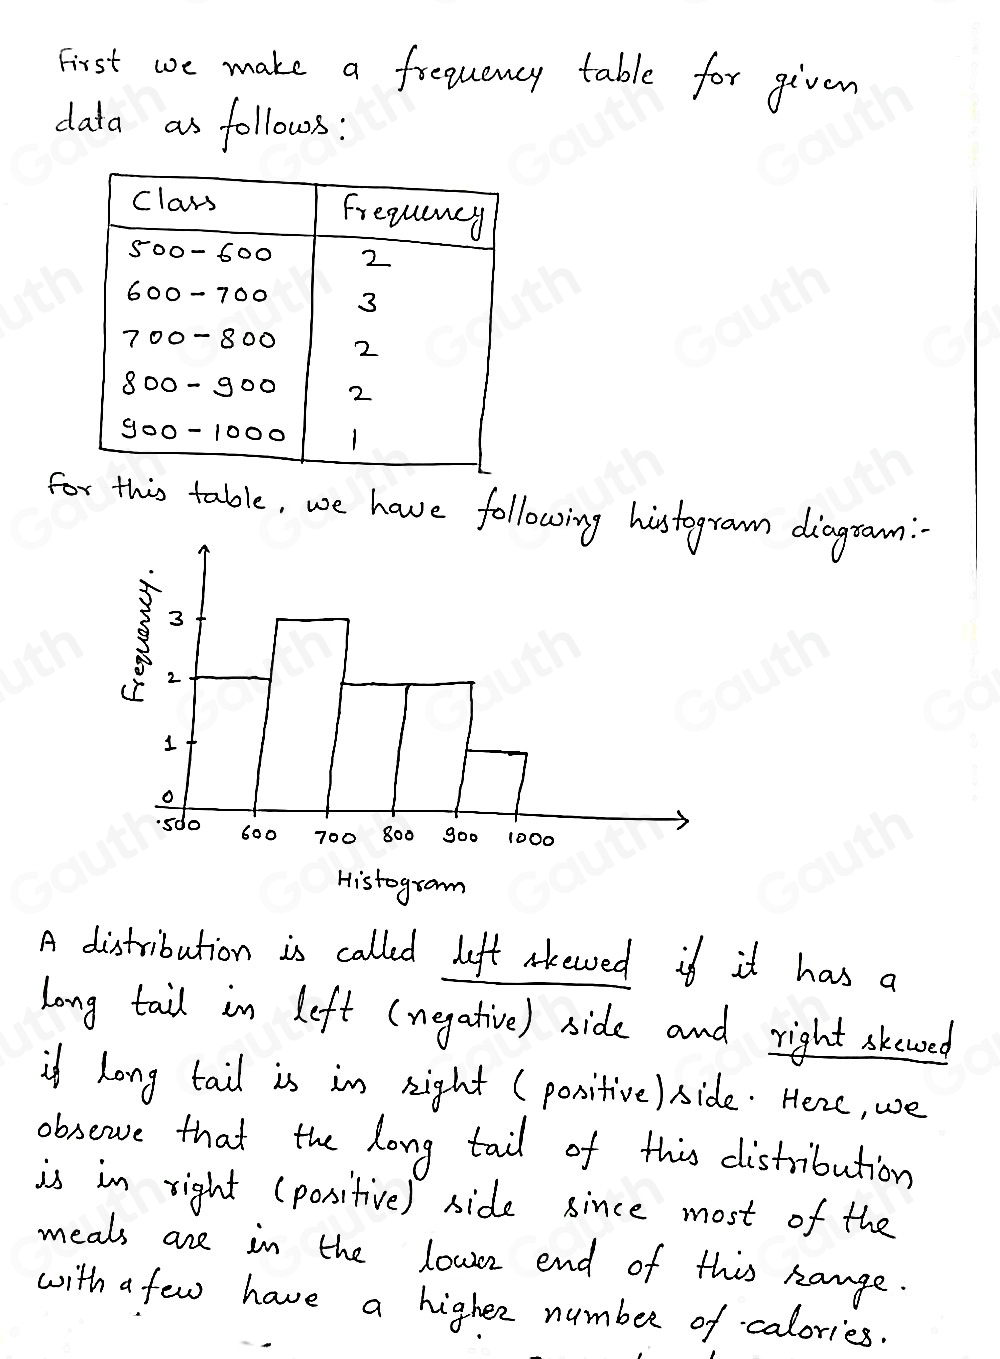 First we make a frequency table for given
data as follows:
Class Frequency
500-600 2
600-700 3
700-800 2
800-900 2
900-1000 1
For this table, we have following histogram diagram:-
Frequency.
3
2
1
0
500 600 700 800 900 1000
Histogram
A distribution is called left skewed if it has a
long tail in left (negative) side and right skewed
if long tail is in right (positive) side. Here, we
observe that the long tail of this distribution
is in right (positive) side since most of the
meals are in the lower end of this range.
with a few have a higher number of calories.
Gauth